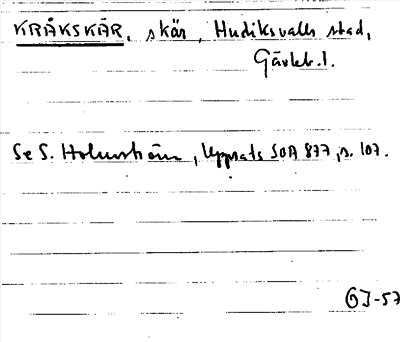 KRÅKSKÄR, skär, Hudiksvalls stad,
Gävleb. l.
Se S. Holmström, Uppsats SOA 877, s. 107.
GJ-57